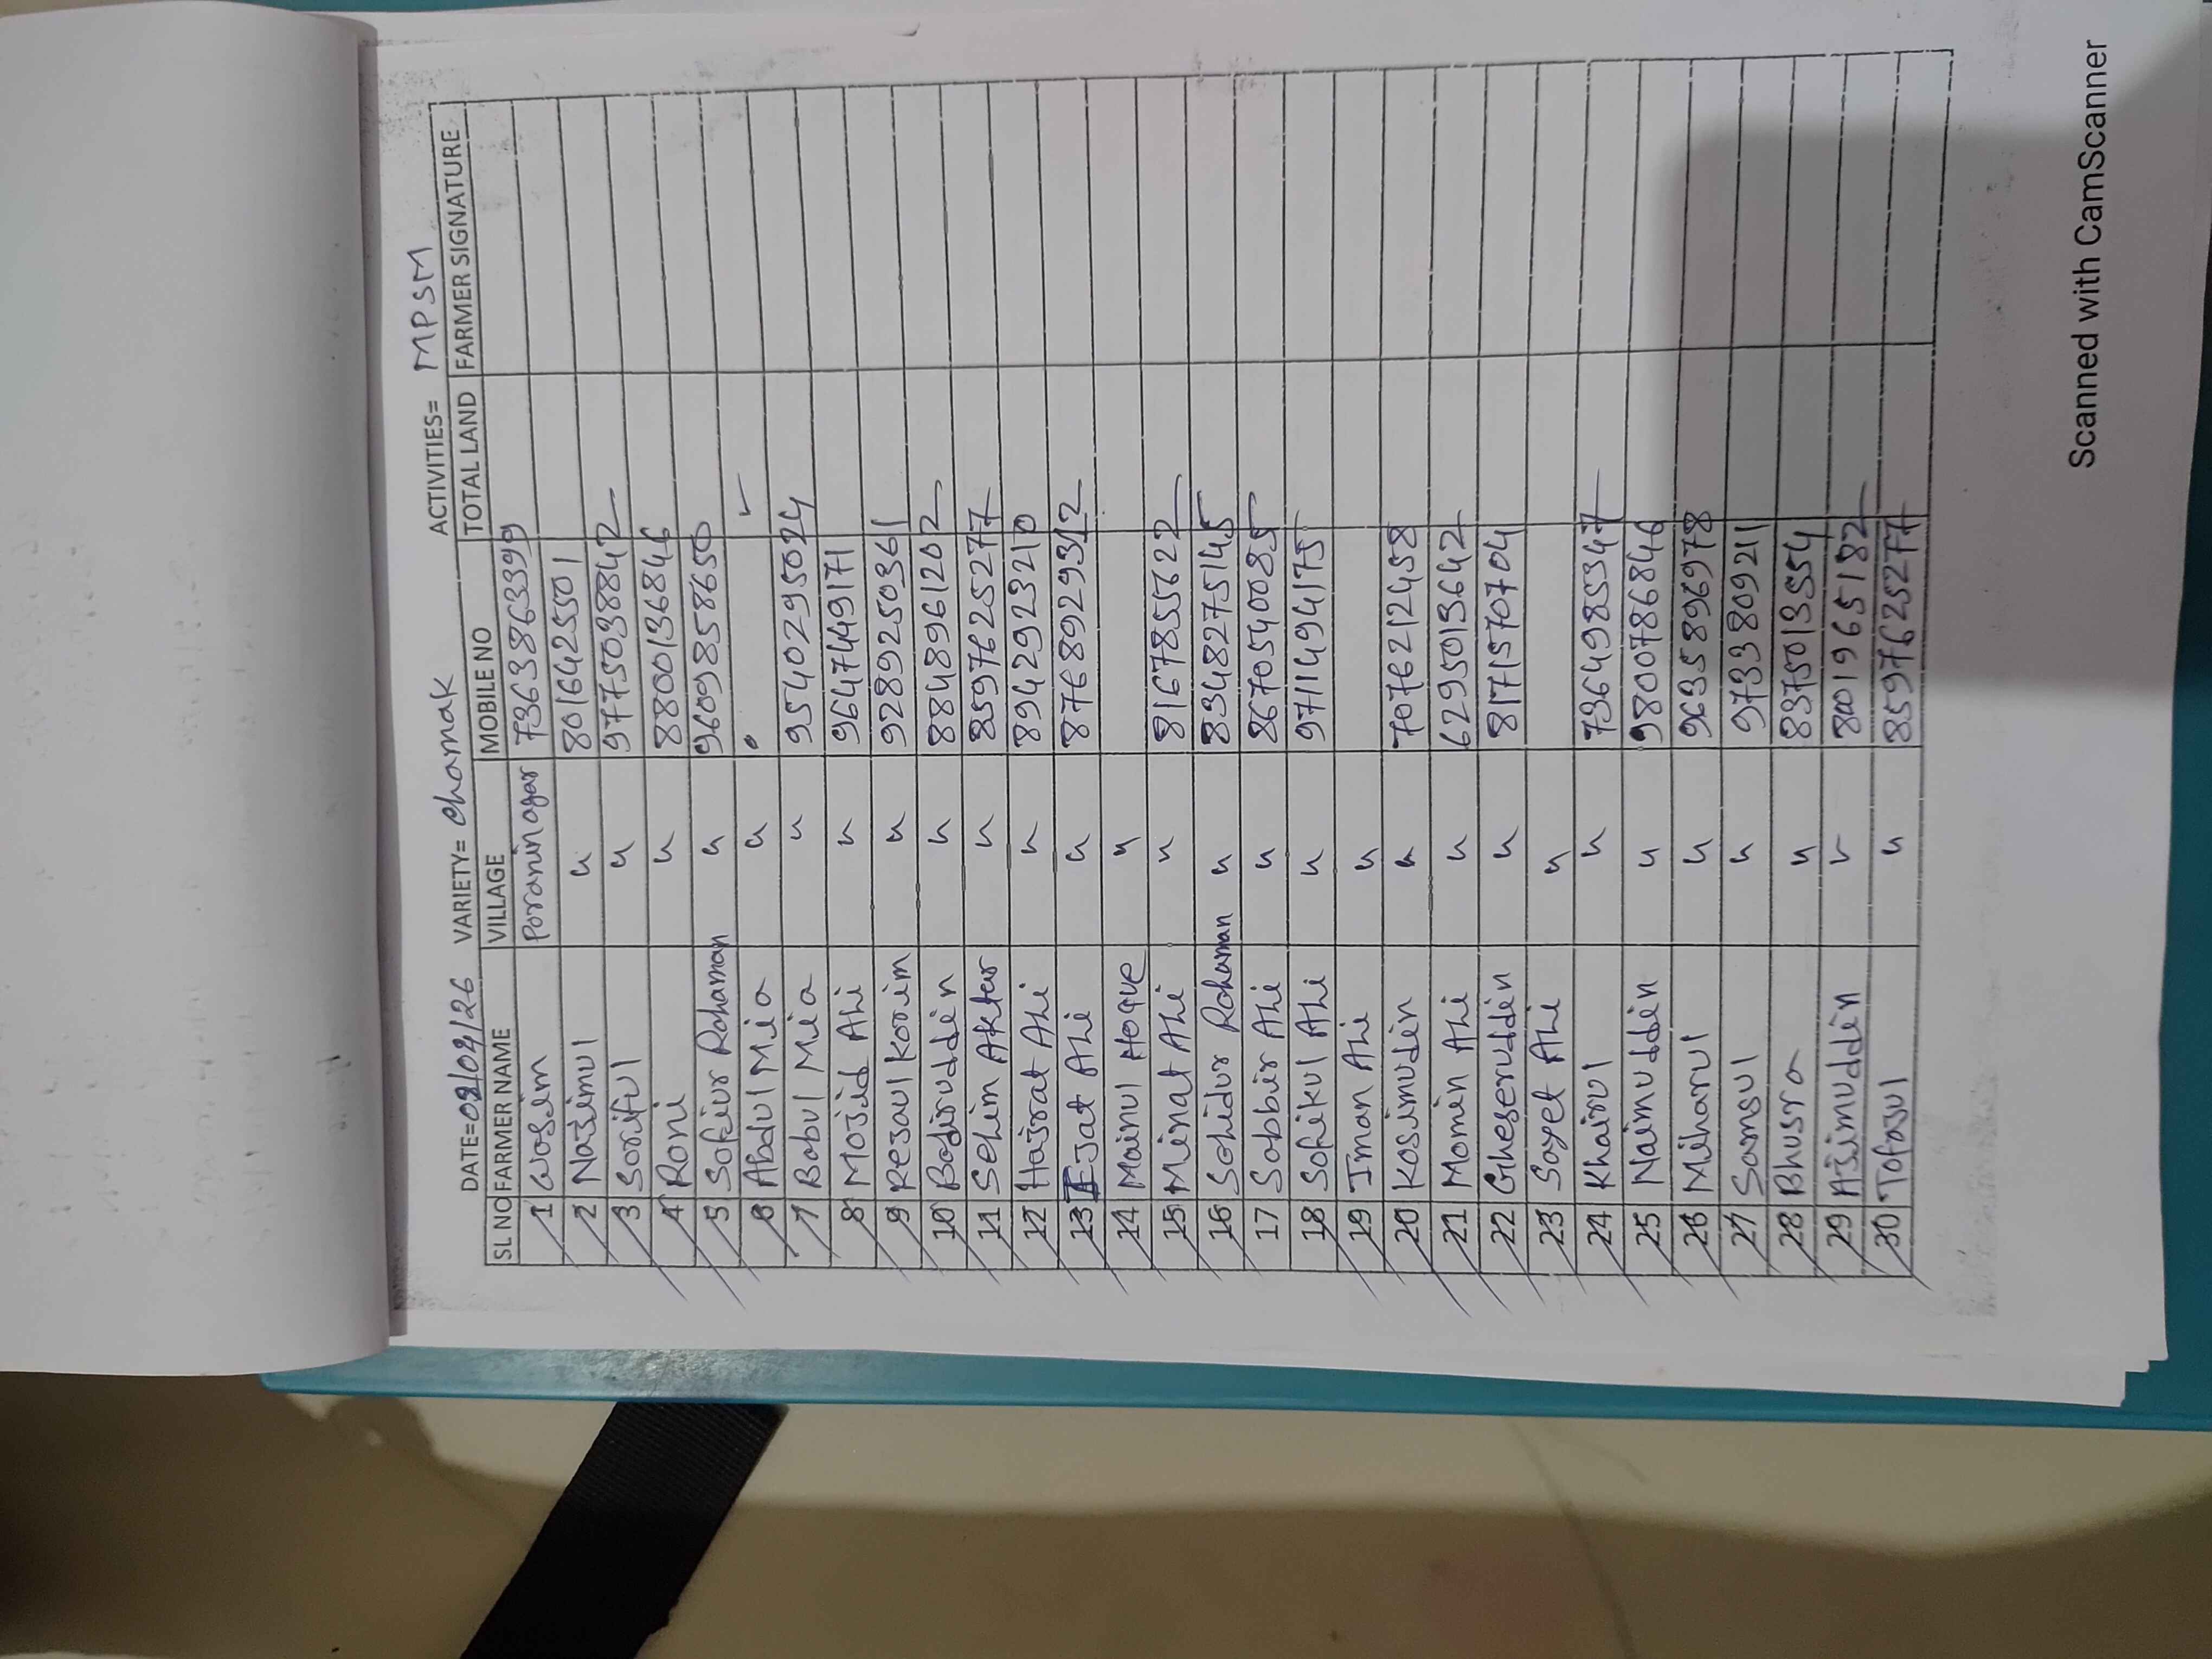 DATE=08/04/26 VARIETY= Chamak ACTIVITIES= MPSM
SL NO FARMER NAME VILLAGE MOBILE NO TOTAL LAND FARMER SIGNATURE
1 Wosim Poraninagar 7363863399
2 Nazimul " 8016425501
3 Soriful " 9775038842
4 Roni " 8800136846
5 Sofiur Rohaman " 9609858650
6 Abdul Mia "
7 Babul Mia " 9540295024
8 Mojid Ali " 9647449171
9 Resaul Korim " 9289250361
10 Bodiruddin " 8848961202
11 Selim Akter " 8597625277
12 Hajrat Ali " 8942923210
13 Ejat Ali " 8768929312
14 Mainul Hoque "
15 Minat Ali " 8167855622
16 Sohidur Rohaman " 8348275145
17 Sobbir Ali " 8670540085
18 Sofikul Ali " 9711494175
19 Iman Ali "
20 Kosimudin " 7076212458
21 Momin Ali " 6295013642
22 Gheseruddin " 8171570704
23 Soyet Ali "
24 Khairul " 7364985347
25 Naimuddin " 9800786846
26 Miharul " 9635896978
27 Samsul " 9733809211
28 Bhusra " 8375013554
29 Azimuddin " 8001965182
30 Tofajul " 8597625277
Scanned with CamScanner